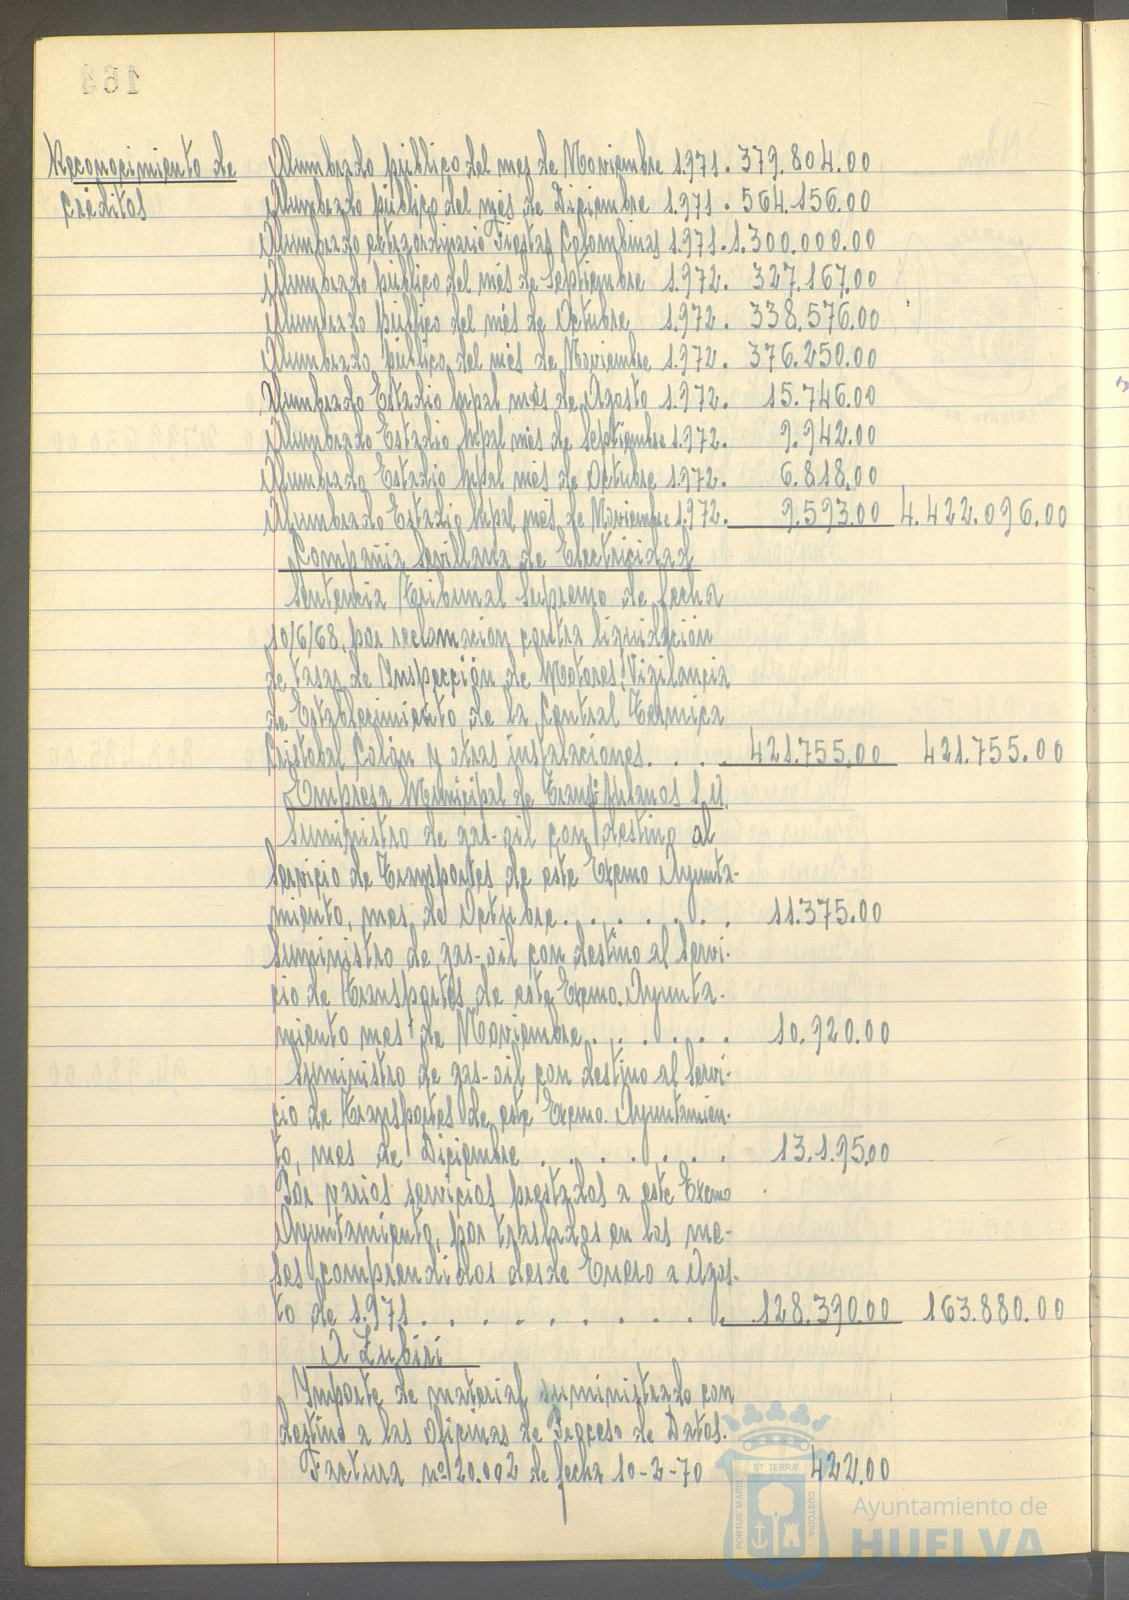 Reconocimiento de
créditos
Alumbrado público del mes de Noviembre 1.971. 379.804.00
Alumbrado público del mes de Diciembre 1.971. 564.156.00
Alumbrado extraordinario Fiestas Colombinas 1.971. 1.300.000.00
Alumbrado público del més de Septiembre 1.972. 327.167.00
Alumbrado público del més de Octubre 1.972. 338.576.00
Alumbrado público del més de Noviembre 1.972. 376.250.00
Alumbrado Estadio Mpal més de Agosto 1.972. 15.746.00
Alumbrado Estadio Mpal més de Septiembre 1.972. 9.942.00
Alumbrado Estadio Mpal més de Octubre 1.972. 6.818.00
Alumbrado Estadio Mpal més de Noviembre 1.972. 9.593.00 4.422.096.00
Compañia Sevillana de Electricidad
Sentencia Tribunal Supremo de fecha
10/6/68, por reclamación contra liquidación
de tasas de Inspección de Motores, Vigilancia
de Establecimiento de la Central Termica
Cristobal Colón y otras instalaciones. . . . 421.755.00 421.755.00
Empresa Municipal de Transp. Urbanos S.A.
Suministro de gas-oil con destino al
Servicio de Transportes de este Excmo Ayunta-
miento, mes de Octubre. . . . . . . 11.375.00
Suministro de gas-oil con destino al Servi-
cio de Transportes de este Excmo. Ayunta-
miento mes de Noviembre. . . . . . . 10.920.00
Suministro de gas-oil con destino al Servi-
cio de Transportes de este Excmo. Ayuntamien-
to, mes de Diciembre . . . . . . 13.195.00
Por varios servicios prestados a este Excmo
Ayuntamiento, por traslados en los me-
ses comprendidos desde Enero a Agos-
to de 1.971. . . . . . . . . . 128.390.00 163.880.00
A Zubiri
Importe de material suministrado con
destino a las Oficinas de Proceso de Datos.
Factura nº 120.002 de fecha 10-2-70 422.00
PORTUS MARIS ET TERRAE CUSTODIA
Ayuntamiento de
HUELVA